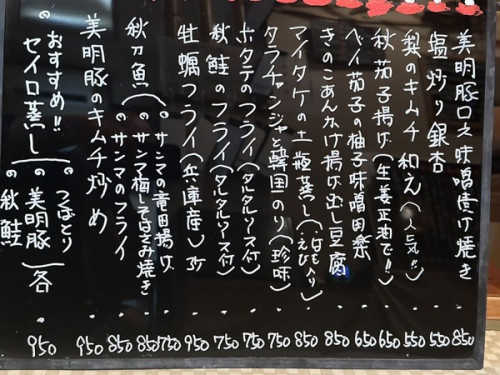 美明豚ロース味噌漬け焼き 850
塩炒り銀杏 550
梨のキムチ和え(人気!!) 550
秋茄子揚げ(生姜正油で!!) 650
ベイ茄子の柚子味噌田楽 650
きのこあんかけ揚げ出し豆腐 850
マイタケの土瓶蒸し(はも入り えび) 850
タラチャンジャと韓国のり(珍味) 750
ホタテのフライ(タルタルソース付) 750
秋鮭のフライ(タルタルソース付) 750
牡蠣フライ(兵庫産)3ケ 950
秋刀魚
・サンマの竜田揚げ 750
・サンマ梅しそはさみ焼き 850
・サンマのフライ 850
美明豚のキムチ炒め 950
おすすめ!!
セイロ蒸し
・つばとり
・美明豚
・秋鮭
各 950